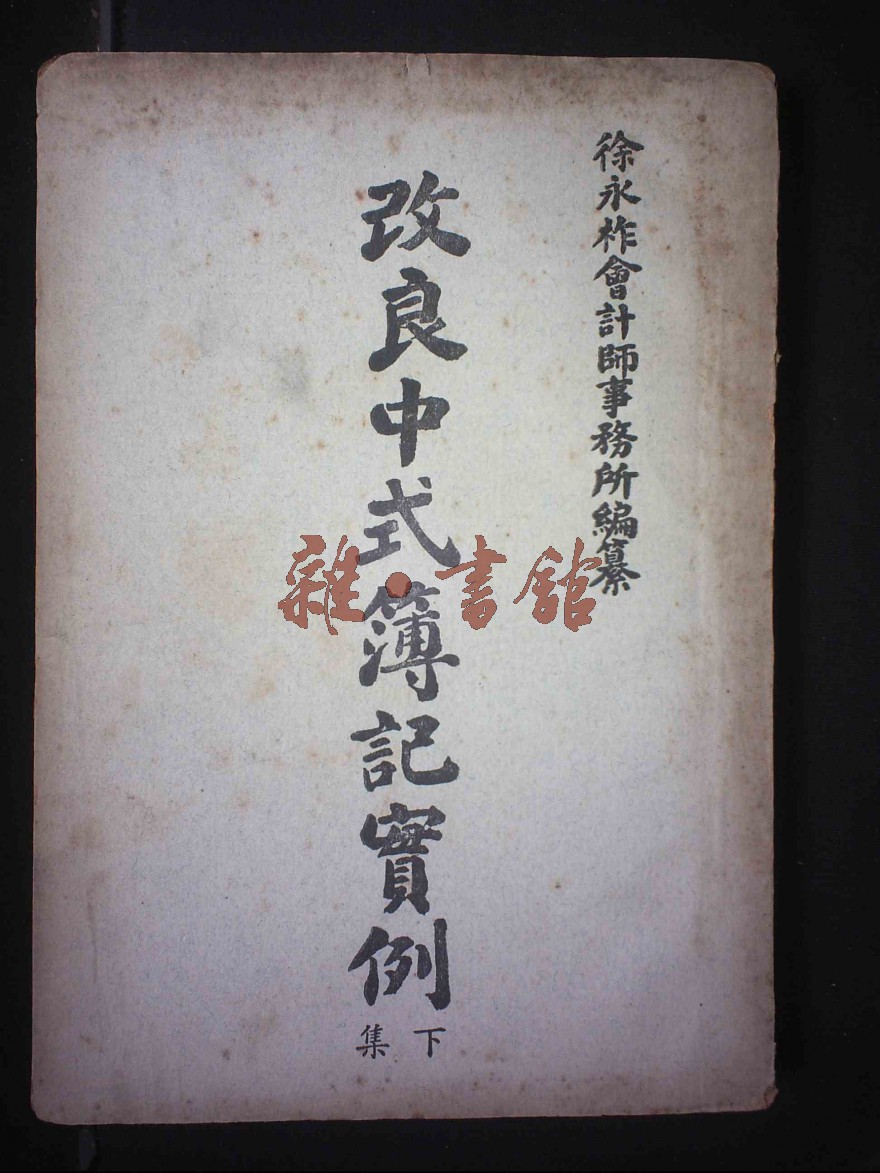 徐永柞會計師事務所編纂
改良中式簿記實例
下集
雜•書館